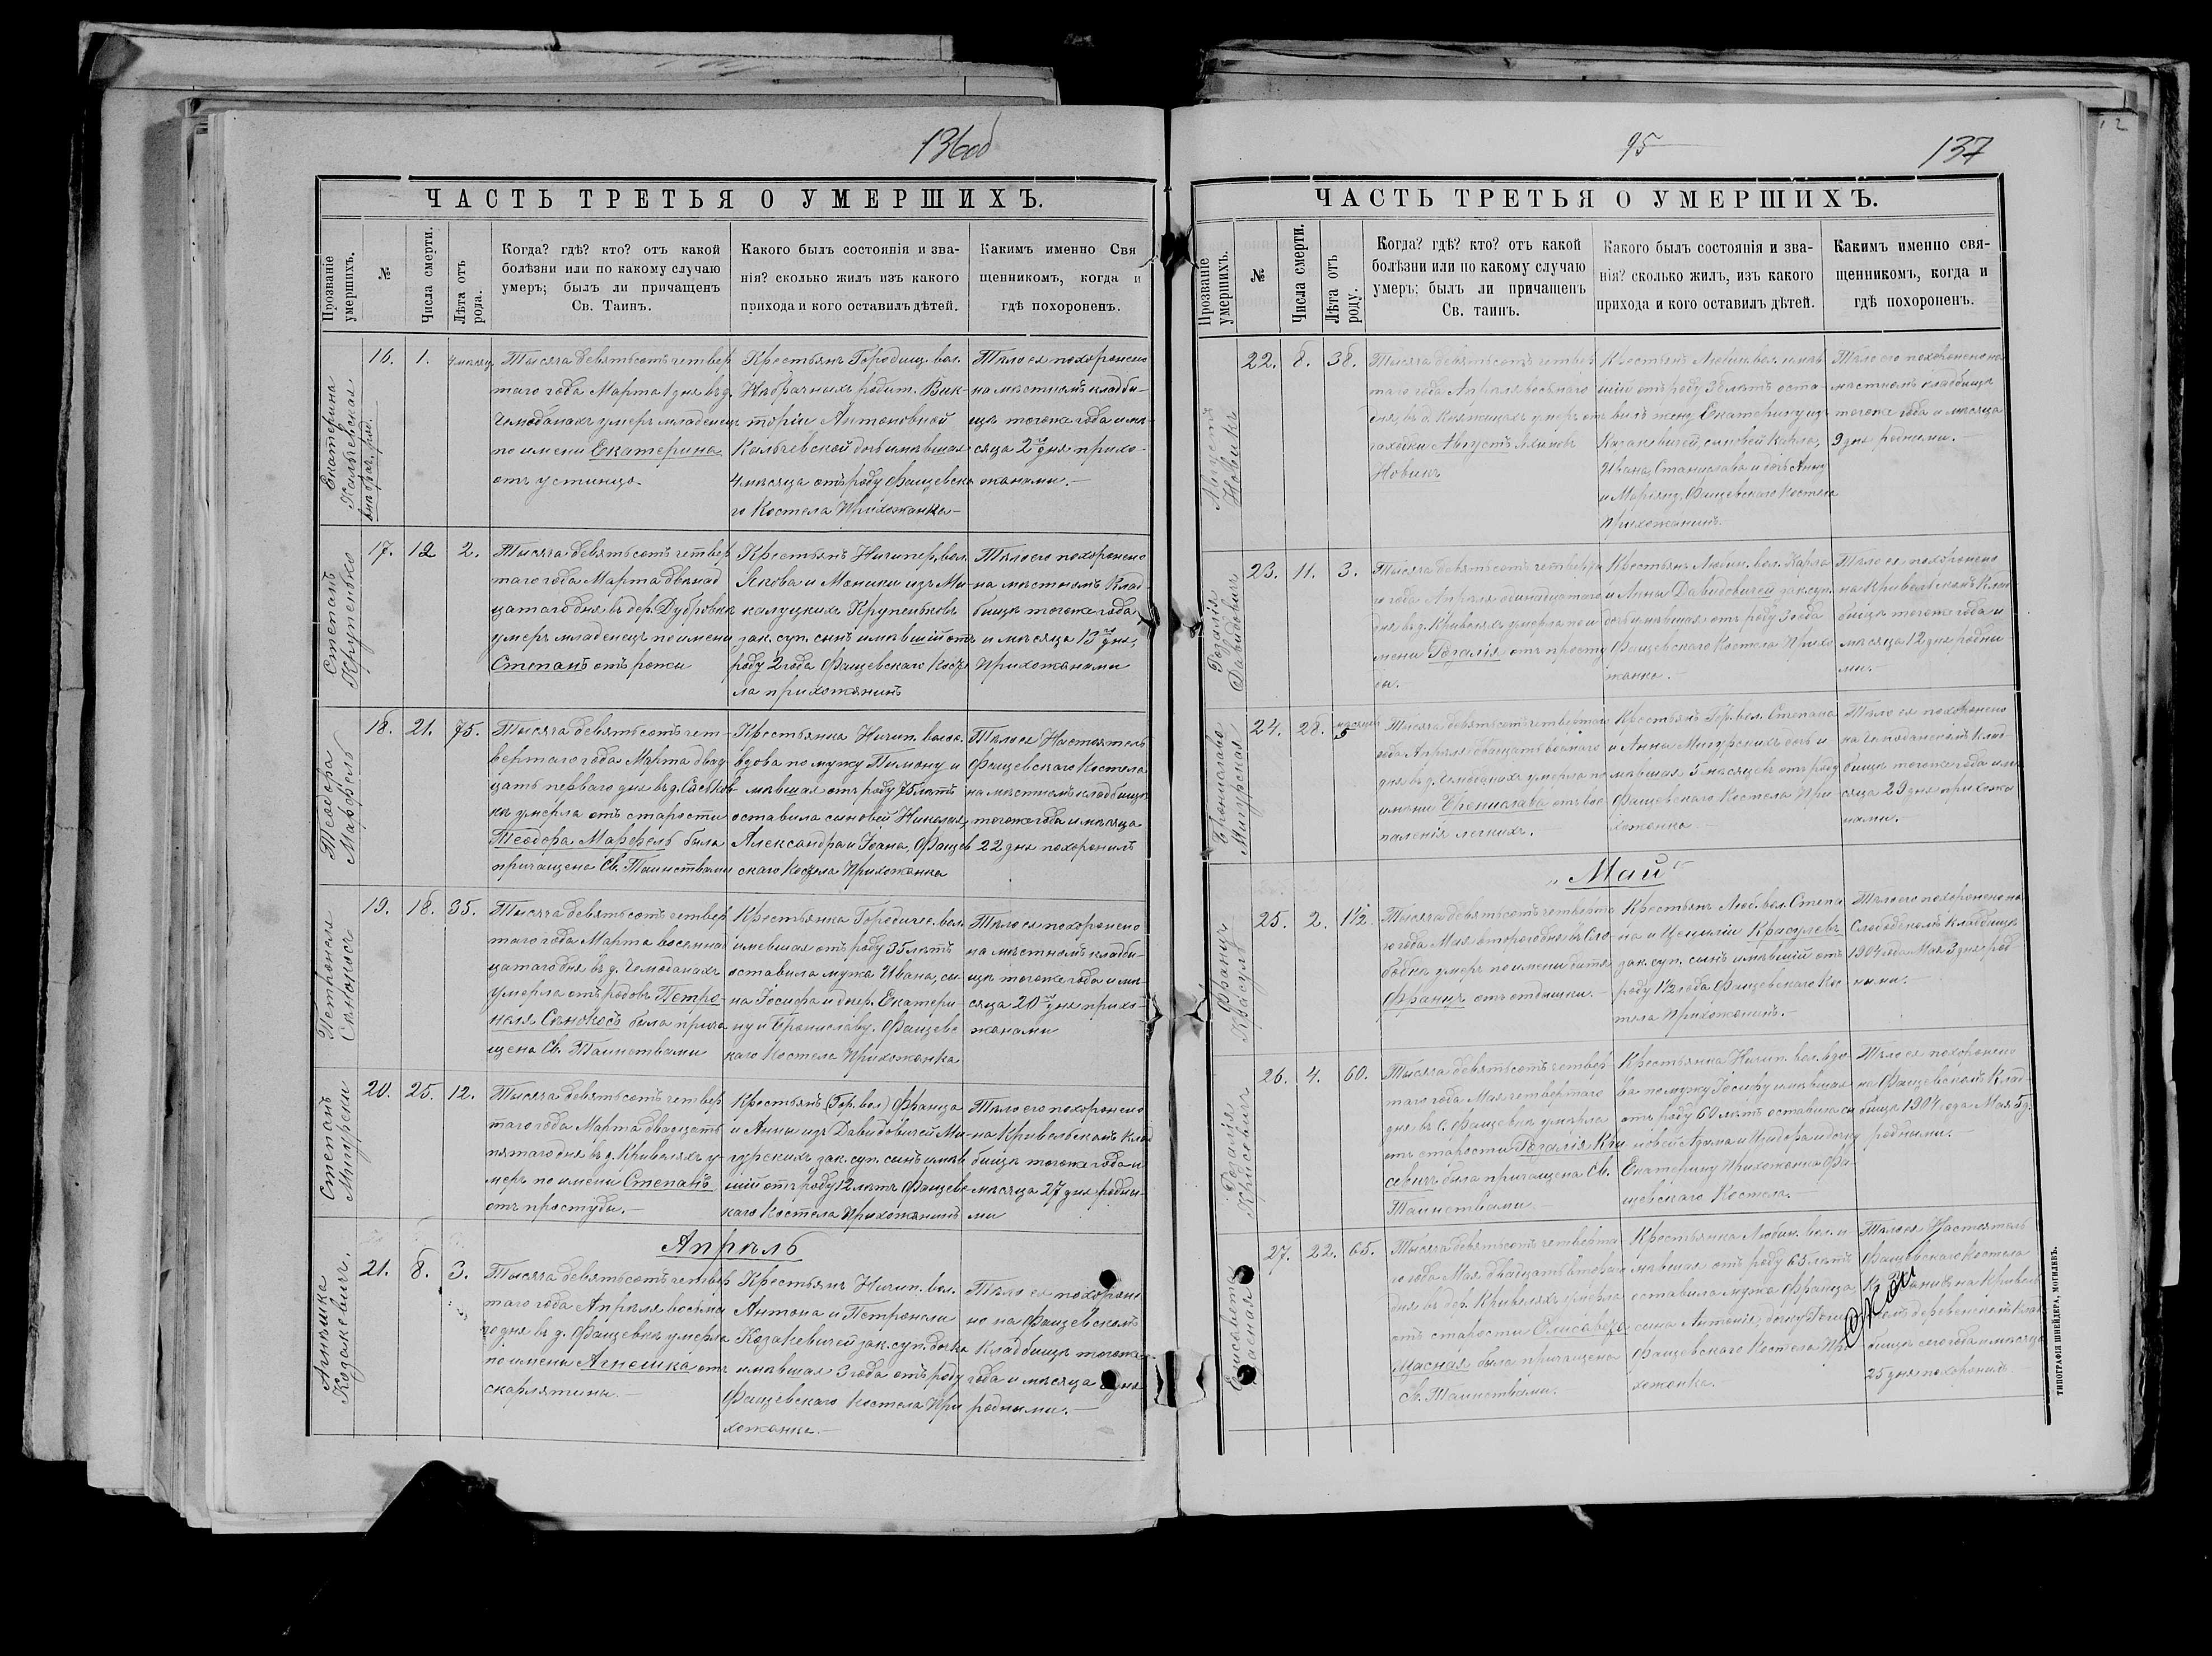 136об
ЧАСТЬ ТРЕТЬЯ О УМЕРШИХЪ.
Прозваніе умершихъ.
№
Числа смерти.
Лѣта отъ рода.
Когда? гдѣ? кто? отъ какой
болѣзни или по какому случаю
умеръ; былъ ли причащенъ
Св. Таинъ.
Какого былъ состоянія и зва-
нія? сколько жилъ изъ какого
прихода и кого оставилъ дѣтей.
Какимъ именно Свя
щенникомъ, когда и
гдѣ похороненъ.
Екатерина
внѣбрач. род.
16. 1.
Тысяча девятьсотъ четвер
таго года Марта 1 дня въ д.
Чемоданахъ умеръ младенецъ
по имени Екатерина
отъ
Крестьянъ Городищ. вол.
Внѣбрачныхъ родит. Вик-
торіи Антоновной
дочь имѣвшая
4 мѣсяца отъ роду Фащевска
го Костела Прихожанка—
Тѣло ея похоронено
на мѣстномъ кладби-
щѣ тогоже года и мѣ-
сяца 2го дня прихо-
жанами.—
Степанъ
Крупенько
17. 12 2.
Тысяча девятьсотъ четвер
таго года Марта двѣнад
цатаго дня въ дер. Дубровка
умеръ младенецъ по имени
Степанъ отъ рожи
Крестьянъ Ничипер. вол.
Якова и Моники изъ Ми-
калуцкихъ Крупеньковъ
зак. суп. сынъ имѣвшій отъ
роду 2 года Фащевскаго Косте
ла прихожанинъ
Тѣло его похоронено
на мѣстномъ Клад
бищѣ тогоже года
и мѣсяца 13го дня,
Прихожанами
Теодора
Марфель
18. 21. 75.
Тысяча девятьсотъ чет-
вертаго года Марта двад
цать перваго дня въ д.
кѣ умерла отъ старости
Теодора Марфель была
причащена Св. Таинствами
Крестьянка Ничип. волос.
вдова по мужу Тимону и
мѣвшая отъ роду 75 лѣтъ
оставила сыновей Николая,
Александра и Іоана, Фащев
скаго Костела Прихожанка
Тѣло ея Настоятель
Фащевскаго Костела
на мѣстномъ кладбищѣ
тогоже года и мѣсяца
22 дня похоронилъ
Петронеля
Сѣнокосъ
19. 18. 35.
Тысяча девятьсотъ четвер
таго года Марта восемна
цатаго дня въ д. Чемоданахъ
умерла отъ родовъ Петро-
неля Сѣнокосъ была прича
щена Св. Таинствами
Крестьянка Городищес. вол.
имевшая отъ роду 35 лѣтъ
оставила мужа Ивана, сы-
на Іосифа и дочер. Екатери-
ну и Брониславу. Фащевс
каго Костела Прихожанка
Тѣло ея похоронено
на мѣстномъ кладби-
щѣ тогоже года и мѣ-
сяца 20го дня прихо-
жанами
Степанъ
Мигурски
20. 25. 12.
Тысяча девятьсотъ четвер
таго года Марта двадцать
пятаго дня въ д. Кривеляхъ у-
меръ по имени Степанъ
отъ простуды.—
Крестьянъ (Гор. вол.) Франца
и Анны изъ Давидовичей Ми-
гурскихъ зак. суп. сынъ имѣв
шій отъ роду 12 лѣтъ Фащевс
каго Костела Прихожанинъ
Тѣло его похоронено
на Кривельскомъ клад
бищѣ тогоже года и
мѣсяца 27 дня родны-
ми
Апрѣль
Агнешка
Козакевичъ.
21. 8. 3.
Тысяча девятьсотъ четвер
таго года Апрѣля восьма
го дня въ д. Фащевка умерла
по имени Агнешка отъ
скарлятины.—
Крестьянъ Ничип. вол.
Антона и Петронели
Козакевичей зак. суп. дочка
имѣвшая 3 года отъ роду
Фащевскаго Костела При
хожанка.—
Тѣло ея похороне
но на Фащевскомъ
Кладбищѣ тогоже
года и мѣсяца дня
родными.—
95
137
ЧАСТЬ ТРЕТЬЯ О УМЕРШИХЪ.
Прозваніе умершихъ.
№
Числа смерти.
Лѣта отъ роду.
Когда? гдѣ? кто? отъ какой
болѣзни или по какому случаю
умеръ: былъ ли причащенъ
Св. таинъ.
Какого былъ состоянія и зва-
нія? сколько жилъ, изъ какого
прихода и кого оставилъ дѣтей.
Какимъ именно свя-
щенникомъ, когда и
гдѣ похороненъ.
Августъ
Новикъ
22. 8. 38.
Тысяча девятьсотъ четвер
таго года Апрѣля восьмаго
дня, въ д. Княжицахъ умеръ отъ
чахотки Августъ
Новикъ
Крестьянъ Любин. вол. имѣв
шій отъ роду 38 лѣтъ оста-
вилъ жену Екатерину изъ
сыновей Карла,
Ивана, Станислава и дочь Анну
и Марьяну, Фащевскаго Костела
Прихожанинъ.
Тѣло его похоронено на
мѣстномъ кладбищѣ
тогоже года и мѣсяца
9 дня родными.—
Розалія
Давидовичъ
23. 11. 3.
Тысяча девятьсотъ четверта
го года Апрѣля одинадцатаго
дня въ д. Кривеляхъ умерла по и
мени Розалія отъ просту
ды.—
Крестьянъ Любин. вол. Карла
и Анны Давидовичей зак. суп.
дочь имѣвшая отъ роду 3 года
Фащевскаго Костела Прихо
жанка.
Тѣло ея похоронено
на Кривельскомъ Клад
бищѣ тогоже года и
мѣсяца 12 дня родны
ми.—
Брониславо
Мигурская
24. 28. мѣсяцев 5
Тысяча девятьсотъ четвертаго
года Апрѣля двадцать восьмаго
дня въ д. Чемоданахъ умерла по
имени Бронислава отъ вос
паленія легкихъ.
Крестьянъ Гор. вол. Степана
и Анны Мигурскихъ дочь и
мѣвшая 5 мѣсяцевъ отъ роду
Фащевскаго Костела При
хожанка—
Тѣло ея похоронено
на Чемоданскомъ Клад-
бищѣ тогоже года и мѣ
сяца 29 дня прихожа
нами.—
„Май“
Францъ
Красуля
25. 2. 1½
Тысяча девятьсотъ четверта
го года Мая второго дня въ Сло
бодкѣ умеръ по имени дитя
Францъ отъ отдышки.—
Крестьянъ Люб. вол. Степа
на и Цециліи Красулевъ
зак. суп. сынъ имѣвшій отъ
роду 1½ года Фащевскаго Ко-
стела Прихожанинъ.—
Тѣло его похоронено на
Слободскомъ Кладбищѣ
1904 года Мая 3 дня род
ными.—
Розалія
Крисевичъ
26. 4. 60.
Тысяча девятьсотъ четвер-
таго года Мая четвертаго
дня въ с. Фащевка умерла
отъ старости Розалія Кри
севичъ была причащена Св.
Таинствами
Крестьянка Ничип. вол. вдо
ва по мужу Іосифу имѣвшая
отъ роду 60 лѣтъ оставила сы
новей Адама и Исидора и дочку
Екатерину Прихожанка Фа-
щевскаго Костела.—
Тѣло ея похоронено
на Фащевскомъ Клад-
бищѣ 1904 года Мая 5 д.
родными.—
Елисавета
27. 22. 65.
Тысяча девятьсотъ четверта-
го года Мая двадцать второго
дня въ дер. Кривеляхъ умерла
отъ старости Елисавета
была причащена
Св. Таинствами.
Крестьянка Любин. вол. и-
мѣвшая отъ роду 65 лѣтъ
оставила мужа Франца,
сына Антонія, дочку
Фащевскаго Костела При
хожанка.
Тѣло ея Настоятель
Фащевскаго Костела
на Кривель
скомъ деревенскомъ Клад
бищѣ сего года и мѣсяца
25 дня похоронилъ
ТИПОГРАФІЯ ШНЕЙДЕРА, МОГИЛЕВЪ.